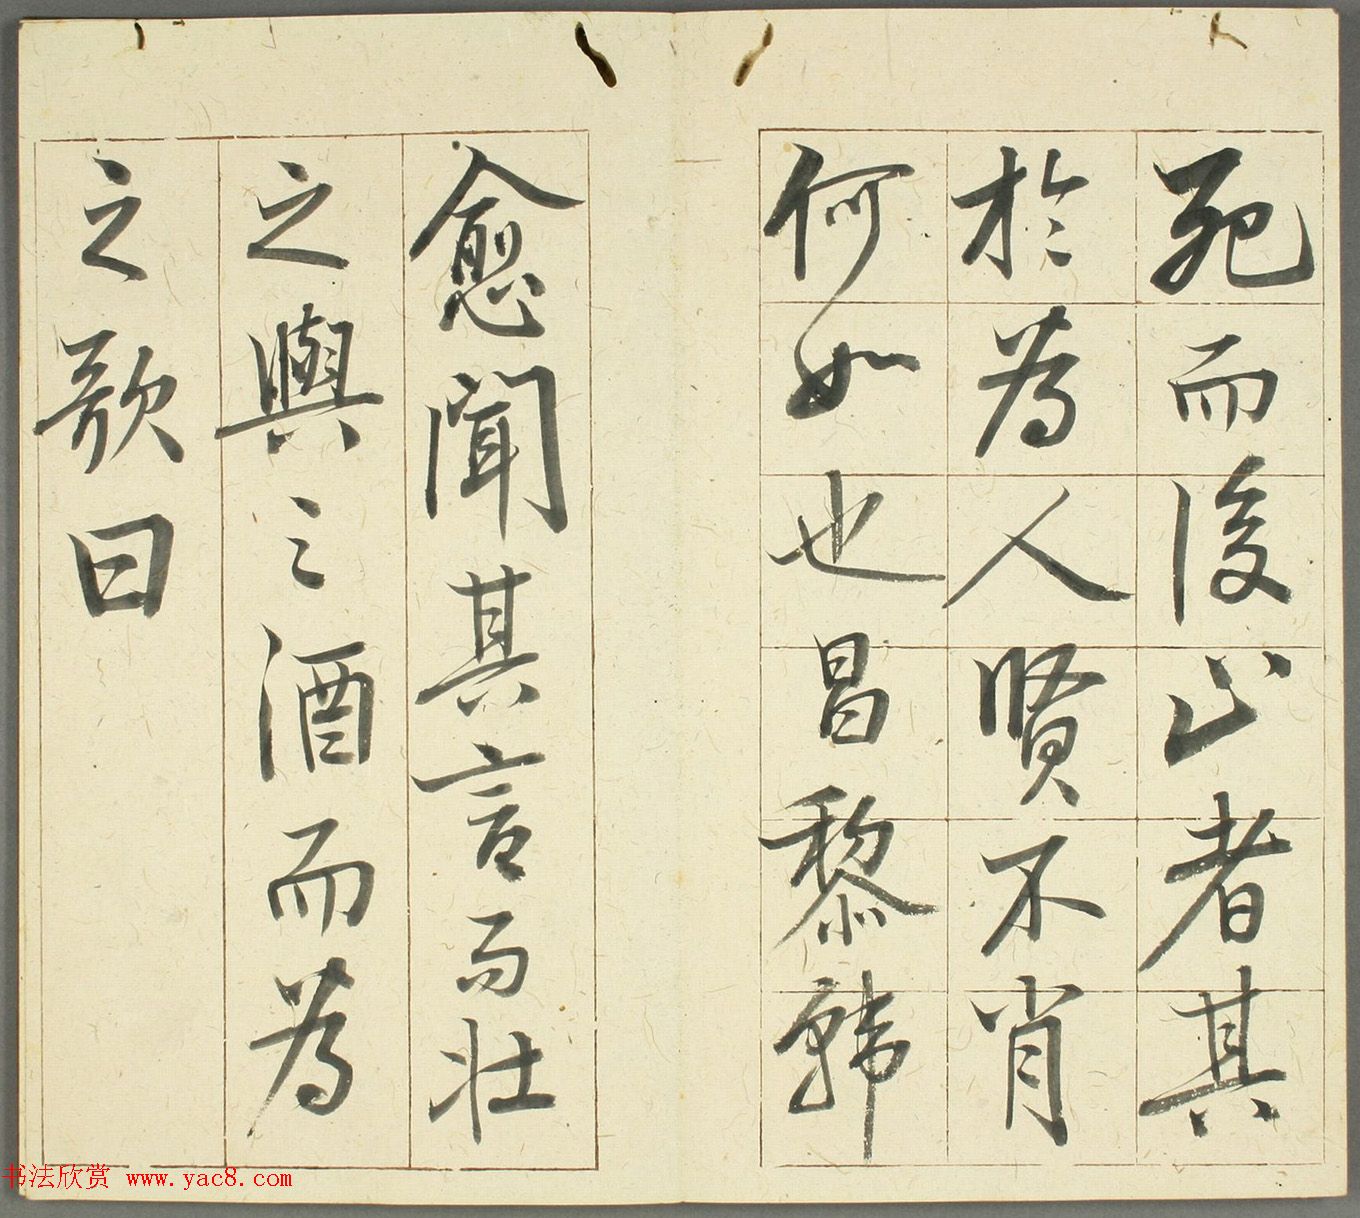 死而後止者其
於為人賢不肖
何如也昌黎韓
愈聞其言而壯
之與之酒而為
之歌曰
书法欣赏 www.yac8.com